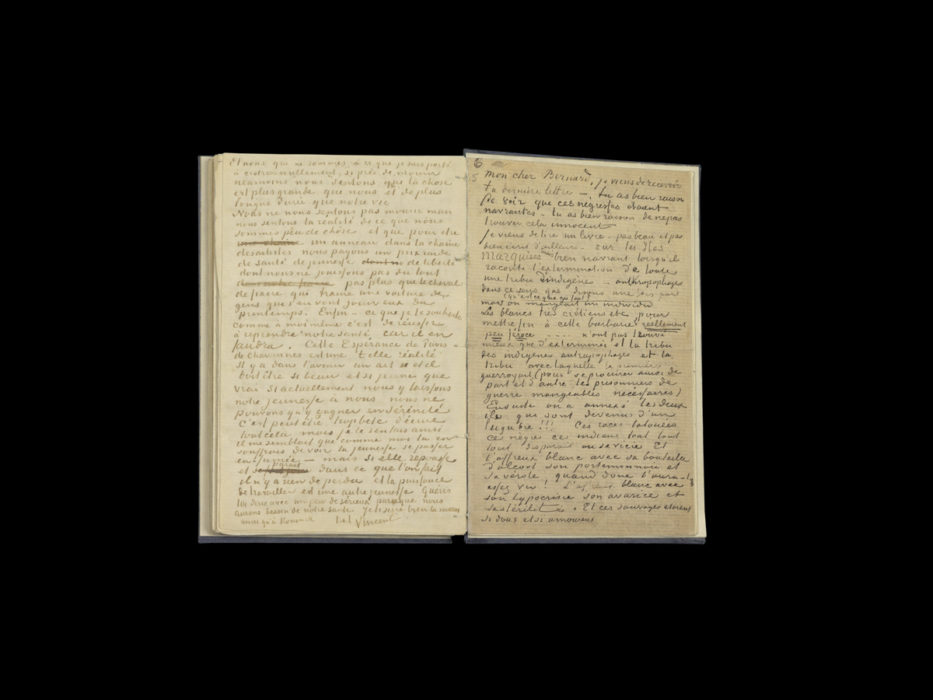 Et nous qui ne sommes, à ce que je suis porté
à croire nullement, si près de mourir
néanmoins nous sentons que la chose
est plus grande que nous et de plus
longue durée que notre vie
Nous ne nous sentons pas mourir mais
nous sentons la réalité de ce que nous
sommes peu de chose et que pour être
un anneau dans la chaîne
des artistes nous payons un prix raide
de santé de jeunesse de liberté
dont nous ne jouissons pas du tout
pas plus que le cheval
de fiacre qui traine une voiture de
gens qui s'en vont jouir eux du
printemps. Enfin – ce que je te souhaite
comme à moi même c'est de réussir
à reprendre notre santé, car il en
faudra. Cette Espérance de Puvis
de Chavannes est une telle réalité
Il y a dans l'avenir un art et il
doit être si beau et si jeune que
vrai si actuellement nous y laissons
notre jeunesse à nous nous ne
pouvons qu'y gagner en sérénité
C'est peut être trop bête d'écrire
tout cela mais je le sentais ainsi
il me semblait que comme moi tu en
souffrais de voir ta jeunesse se passer
en fumée – mais si elle repousse
et parait dans ce que l'on fait
il n'y a rien de perdu et la puissance
de travailler est une autre jeunesse
de notre santé
Vincent
6
mon cher Bernard, je viens de recevoir
ta dernière lettre – tu as bien raison
de voir que ces négresses étaient
navrantes – tu as bien raison de ne pas
trouver cela innocent
Je viens de lire un livre – pas beau et pas
bien écrit d'ailleurs – sur les Iles
Marquises bien navrant lorsqu'il
raconte l'extermination de toute
une tribu d'indigène – anthropophages
dans ce sens que disons une fois par
mois on mangeait un individu
Les blancs très crétiens etc pour
mettre fin à cette barbarie réellement
peu féroce ..... n'ont pas trouvé
mieux que d'exterminer et la tribu
des indigènes antropophages et la
tribu avec laquelle la première
guerroyait (pour se procurer ainsi de
part et d'autre les prisonniers de
guerre mangeables nécessaires)
Ensuite on a annexé les deux
iles que sont devenus d'un
lugubre!!! Ces races tatouées
ces nègres ces indiens tout tout
tout disparait ou se vicie Et
l'affreux blanc avec sa bouteille
d'alcool son portemonnaie et
sa vérole, quand donc l'aura-t-on
assez vu! L'affreux blanc avec
son hypocrisie son avarice et
sa stérilité. Et ces sauvages étaient
si doux et si amoureux